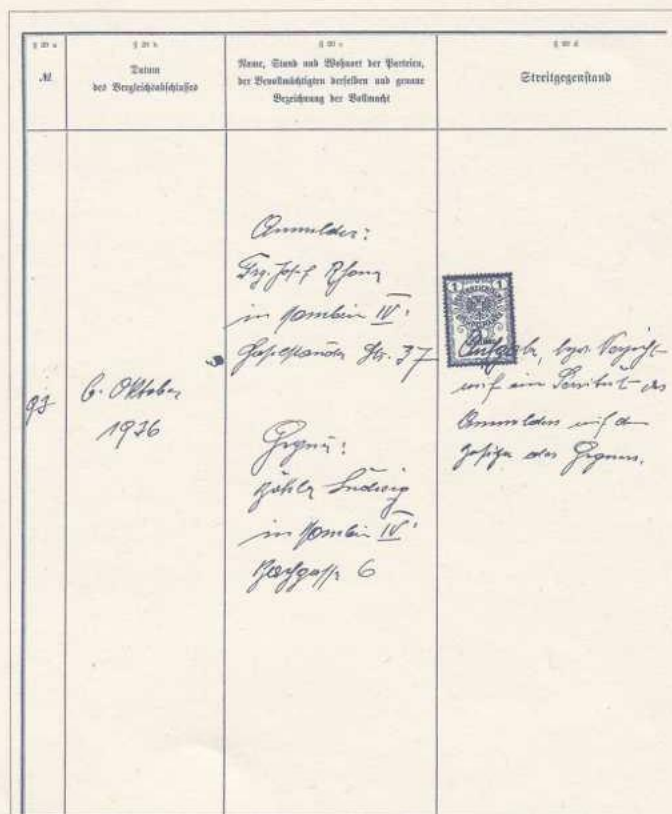 § 20 a
№
§ 20 b
Datum
des Vergleichsabschlusses
§ 20 c
Name, Stand und Wohnort der Parteien,
der Bevollmächtigten derselben und genaue
Bezeichnung der Vollmacht
§ 20 d
Streitgegenstand
93
6. Oktober
1936
Anmelder:
Frz. Josef
in Dornbirn IV.
Haselstauder Str. 37
Gegner:
Ludwig
in Dornbirn IV.
Bachgasse 6
1 1
Aufgabe, bzw. Verzicht
auf ein Servitut des
Anmelders auf dem
Besitze des Gegners.